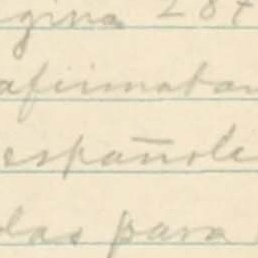 ágina 287
afirmatan
españole
das para